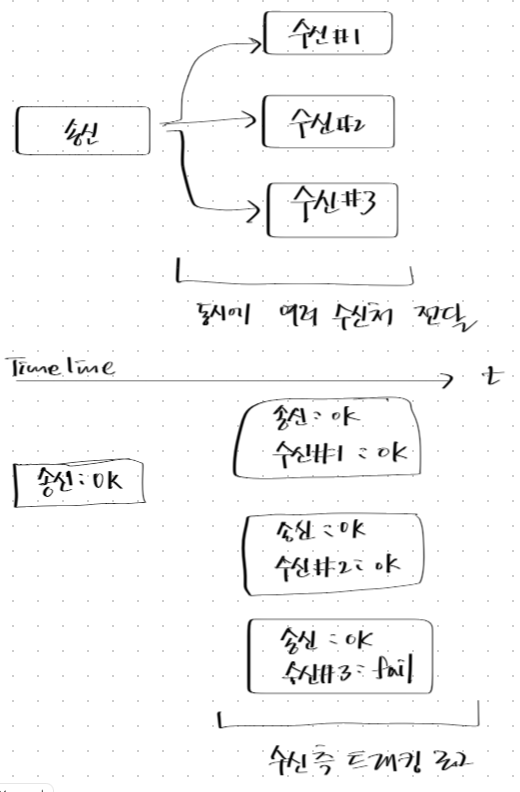 수신#1
송신
수신#2
수신#3
동시에 여러 수신처 전달
Timeline
t
송신: OK
수신#1: OK
송신: OK
송신: OK
수신#2: OK
송신: OK
수신#3: fail
수신측 트래킹 로그